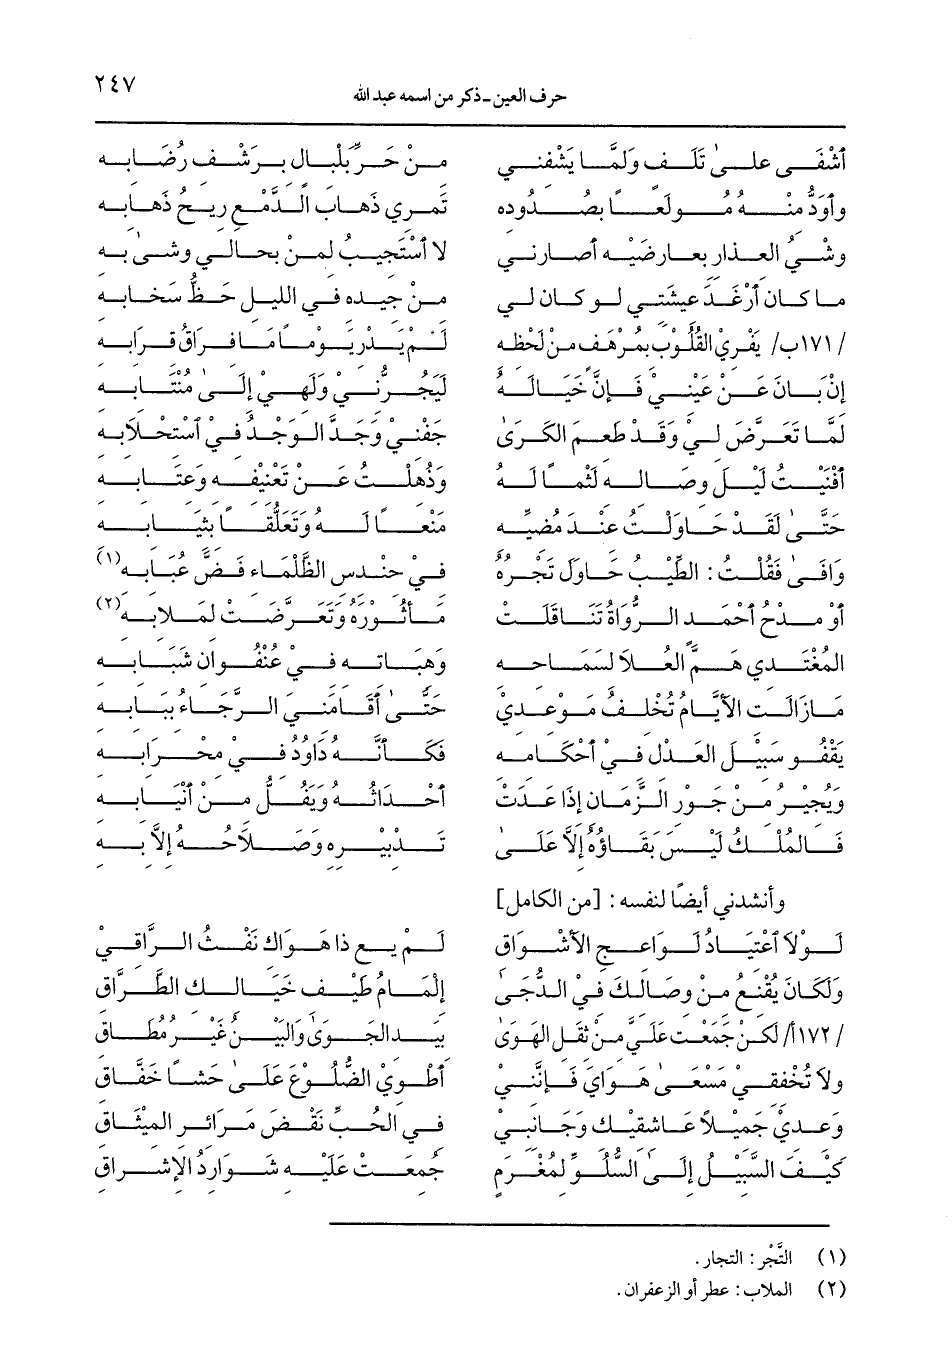 ٢٤٧
حرف العين ـ ذكر من اسمه عبد الله
أَشْفَى عَلَىٰ تَلَفٍ وَلَمَّا يَشْفِنِي مِنْ حَرِّ بَلْبَالٍ بِرَشْفِ رُضَابِهِ
وَأَوَدُّ مِنْهُ مُولَعًا بِصُدُودِهِ تَمْرِي ذَهَابَ الدَّمْعِ رِيحُ ذَهَابِهِ
وَشْيُ العِذَارِ بِعَارِضَيْهِ أَصَارَنِي لَا أَسْتَجِيبُ لِمَنْ بِحَالِي وَشَىٰ بِهِ
مَا كَانَ أَرْغَدَ عِيشَتِي لَوْ كَانَ لِي مِنْ جِيدِهِ فِي اللَّيْلِ حَظُّ سَخَابِهِ
/ ١٧١ب/ يَفْرِيْ القُلُوبَ بِمُرْهَفٍ مِنْ لَحْظِهِ لَمْ يَدْرِ يَوْمًا مَا فِرَاقُ قِرَابِهِ
إِنْ بَانَ عَنْ عَيْنِيْ فَإِنَّ خَيَالَهُ لَيَجُرُّنِي وَلَهِي إِلَىٰ مُنْتَابِهِ
لَمَّا تَعَرَّضَ لِيْ وَقَدْ طَعِمَ الكَرَىٰ جَفْنِيْ وَجَدَّ الوَجْدُ فِيْ اسْتِحْلَابِهِ
أَفْنَيْتُ لَيْلَ وِصَالِهِ لَثْمًا لَهُ وَذَهِلْتُ عَنْ تَعْنِيفِهِ وَعِتَابِهِ
حَتَّىٰ لَقَدْ حَاوَلْتُ عِنْدَ مُضِيِّهِ مَنْعًا لَهُ وَتَعَلُّقًا بِثِيَابِهِ
وَافَىٰ فَقُلْتُ: الطِّيْبُ حَاوَلَ تَجْرُهُ فِيْ حِنْدِسِ الظَّلْمَاءِ فَضَّ عِيَابِهِ(١)
أَوْ مَدْحُ أَحْمَدَ الرُّوَاةُ تَنَاقَلَتْ مَأْثُورَهُ وَتَعَرَّضَتْ لِمَلَابِهِ(٢)
المُغْتَدِي هَمُّ العُلَا لَمَّاحَهُ وَهِبَاتُهُ فِيْ عُنْفُوَانِ شَبَابِهِ
مَا زَالَتِ الأَيَّامُ تُخْلِفُ مَوْعِدِيْ حَتَّىٰ أَقَامَنِيَ الرَّجَاءُ بِبَابِهِ
يَقْفُو سَبِيْلَ العَدْلِ فِيْ أَحْكَامِهِ فَكَأَنَّهُ دَاوُدُ فِيْ مِحْرَابِهِ
وَيُجِيْرُ مِنْ جَوْرِ الزَّمَانِ إِذَا عَدَتْ أَحْدَاثُهُ وَيَفُلُّ مِنْ أَنْيَابِهِ
فَالمُلْكُ لَيْسَ بَقَاؤُهُ إِلَّا عَلَىٰ تَدْبِيْرِهِ وَصَلَاحُهُ إِلَّا بِهِ
وأنشدني أيضًا لنفسه: [من الكامل]
لَوْلَا اعْتِيَادُ لَوَاعِجِ الأَشْوَاقِ لَمْ يَعِ ذَا هَوَاكَ نَفْثُ الرَّاقِيْ
وَلَكَانَ يُقْنِعُ مِنْ وِصَالِكَ فِي الدُّجَىٰ إِلْمَامُ طَيْفِ خَيَالِكِ الطَّرَّاقِ
/ ١٧٢أ/ لَكِنْ جَمَعْتَ عَلَيَّ مِنْ ثِقْلِ الهَوَىٰ بِيَدِ الجَوَىٰ وَالبَيْنِ غَيْرَ مُطَاقِ
وَلَا تُخْفِقِيْ مَسْعَىٰ هَوَايَ فَإِنَّنِيْ أَطْوِيْ الضُّلُوعَ عَلَىٰ حَشًا خَفَّاقِ
وَعِدِيْ جَمِيْلًا عَاشِقِيْكِ وَجَانِبِيْ فِي الحُبِّ نَقْضَ مَرَائِرِ المِيْثَاقِ
كَيْفَ السَّبِيْلُ إِلَىٰ السُّلُوِّ لِمُغْرَمٍ جُمِعَتْ عَلَيْهِ شَوَارِدُ الإِشْرَاقِ
(١) التَّجْر: التجار.
(٢) الملاب: عطر أو الزعفران.